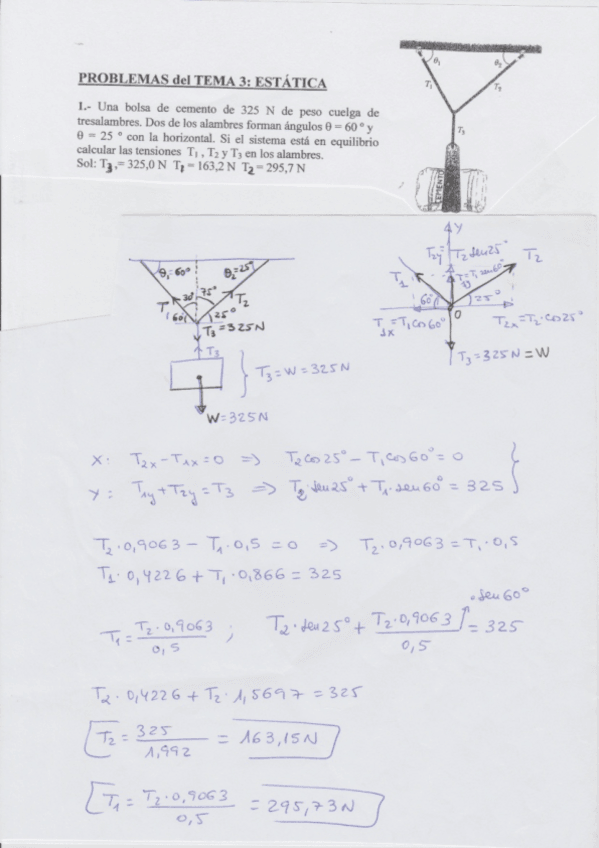 PROBLEMAS del TEMA 3: ESTÁTICA
1.- Una bolsa de cemento de 325 N de peso cuelga de
tresalambres. Dos de los alambres forman ángulos θ = 60 º y
θ = 25 º con la horizontal. Si el sistema está en equilibrio
calcular las tensiones T1 , T2 y T3 en los alambres.
Sol: T3 ,= 325,0 N T1 = 163,2 N T2 = 295,7 N
θ1 θ2
T1 T2
T3
CEMENTO
θ1=60° θ2=25°
T1 30° 75° T2
60° 25°
T3=325N
T3
T3=W=325N
W=325N
Y
T2y= T2 sen25°
T1 T1y=T1 sen60° T2
60° 25°
O
T1x=T1cos60° T2x=T2·cos25°
T3=325N=W
X: T2x-T1x=0 => T2cos25°-T1cos60°=0
Y: T1y+T2y=T3 => T2·sen25°+T1·sen60°=325
T2·0,9063-T1·0,5=0 => T2·0,9063=T1·0,5
T1·0,4226+T1·0,866=325
T1=T2·0,9063/0,5 ; T2·sen25°+T2·0,9063/0,5 ·sen60° =325
T2·0,4226+T2·1,5697=325
T2=325/1,992=163,15N
T1=T2·0,9063/0,5=295,73N